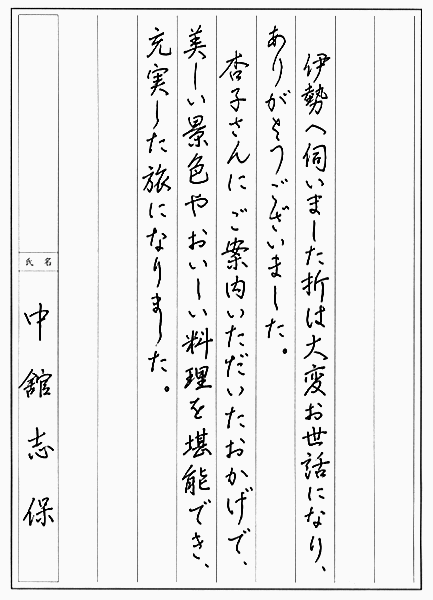 伊勢へ伺いました折は大変お世話になり、
ありがとうございました。
杏子さんにご案内いただいたおかげで、
美しい景色やおいしい料理を堪能でき、
充実した旅になりました。
氏名
中舘志保